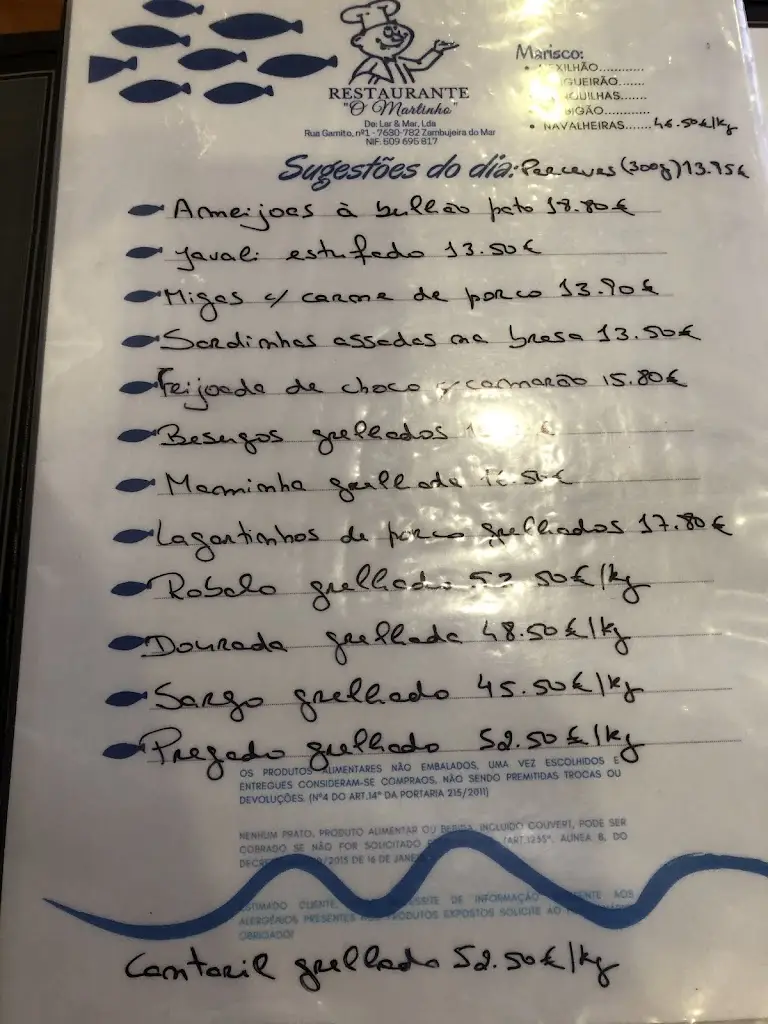 RESTAURANTE
"O Martinho"
De: Lar & Mar, Lda
Rua Gamito, nº1 - 7630-782 Zambujeira do Mar
NIF. 509 695 817
Marisco:
NAVALHEIRAS......46.50€/kg
Sugestões do dia: Perceves (300g) 13.95€
Ameijoas à bulhão pato 18.80€
Javali estufado 13.50€
Migas c/ carne de porco 13.90€
Sardinhas assadas na brasa 13.50€
Feijoada de choco c/ camarão 15.80€
Besugos grelhados
Maminha grelhada
Lagartinhos de porco grelhados 17.80€
Robalo grelhado
Dourada grelhada 48.50€/kg
Sargo grelhado 45.50€/kg
Pregado grelhado 52.50€/kg
OS PRODUTOS ALIMENTARES NÃO EMBALADOS, UMA VEZ ESCOLHIDOS E
ENTREGUES CONSIDERAM-SE COMPRAOS, NÃO SENDO PREMITIDAS TROCAS OU
DEVOLUÇÕES. (Nº4 DO ART.14º DA PORTARIA 215/2011)
NENHUM PRATO, PRODUTO ALIMENTAR OU BEBIDA, INCLUIDO COUVERT, PODE SER
COBRADO SE NÃO FOR SOLICITADO (ART.135º, ALINEA B, DO
2015 DE 16 DE
CLIENTE, DE INFORMAÇÃO AOS
ALERGÉNIOS PRESENTES PRODUTOS EXPOSTOS SOLICITE AO
OBRIGADO!
Cantaril grelhado 52.50€/kg